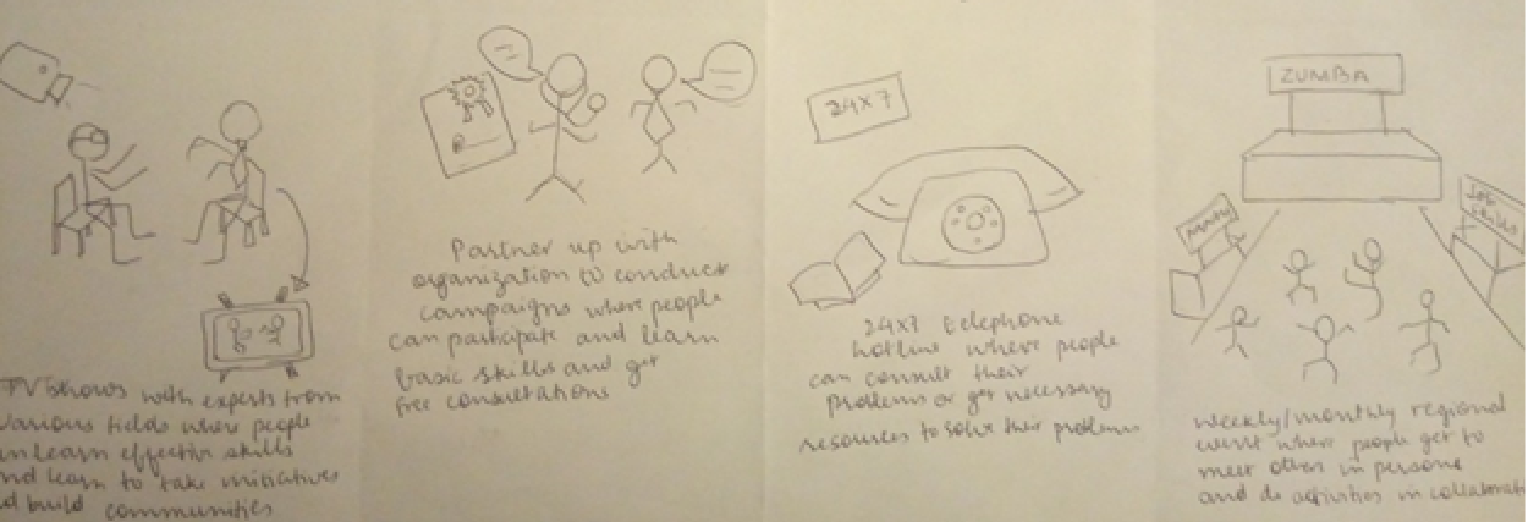 TV shows with experts from
various fields where people
n learn effective skills
nd learn to take initiatives
d build communities
Partner up with
organization to conduct
campaigns where people
can participate and learn
basic skills and get
free consultations
24X7
24X7 telephone
hotline where people
can consult their
problems or get necessary
resources to solve their problems
ZUMBA
Job
skills
weekly/monthly regional
event where people get to
meet other in persone
and do activities in